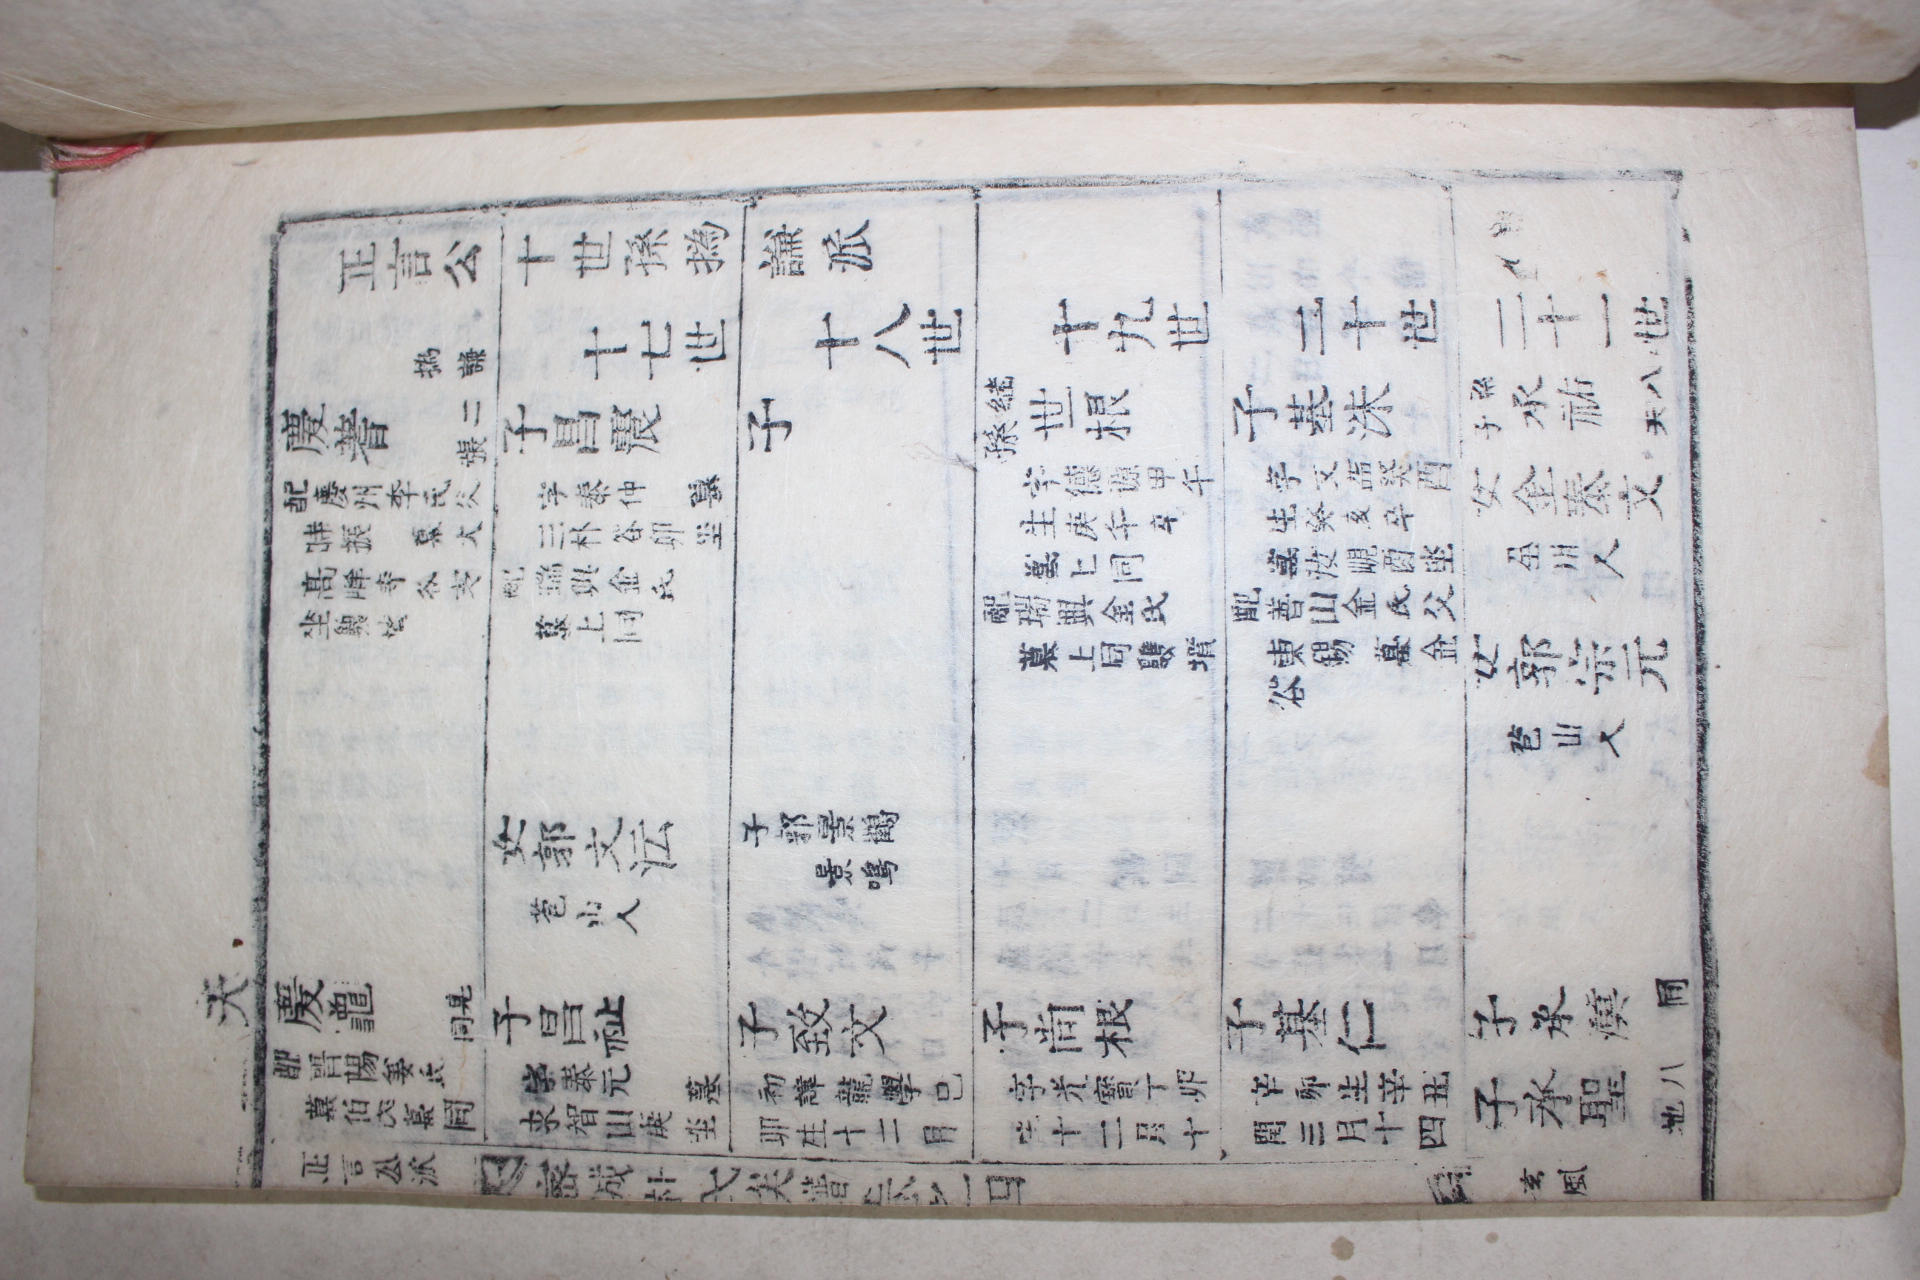 天
正言公
十世孫撝
謙派
撝謙
十七世
十八世
十九世
二十世
二十一世
慶蓍
二張
配慶州李氏父
時振 墓大
高峰寺谷亥
坐雙墳
慶龍
見同
配晋陽姜氏
墓伯氏墓同
子昌震
字泰仲 墓
三朴谷卯坐
配瑞興金氏
墓上同
女郭文沄
苞山人
子昌祉
字泰元 墓
來智山庚坐
子
子郭景鶴
景鳴
子致文
初諱龍學己
卯生十二月
繼孫世根
字德源甲午
生庚午卒
墓上同
配瑞興金氏
墓上同雙墳
子尚根
字光寶丁卯
生十二月十
子基洙
字文 癸酉
生癸亥卒
墓汝峴酉坐
配善山金氏父
東錫 墓金
谷
子基仁
辛卯生辛丑
閏三月十四
系子承祐
八天
女金泰文
川人
女郭宗元
苞山人
子承
同
子承聖
八地
正言公派
密城朴氏族譜卷之四
玄風